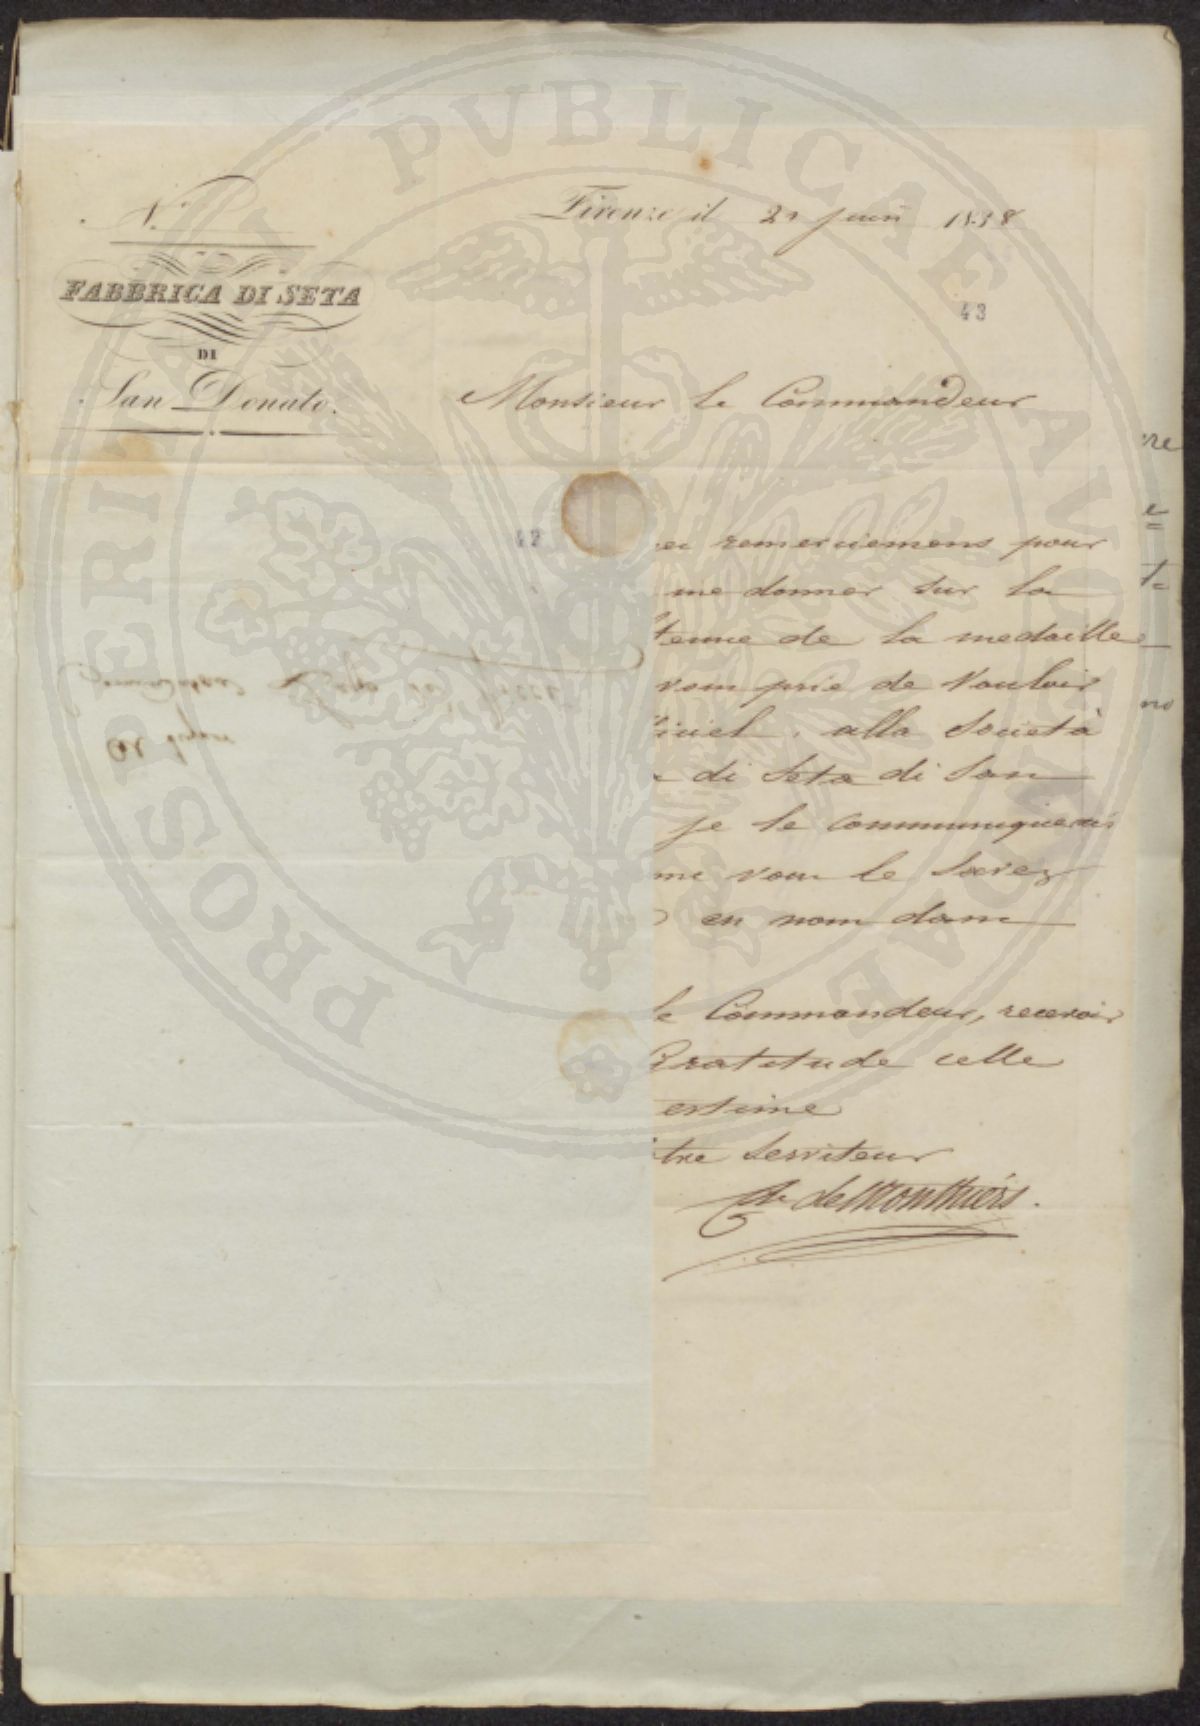 N.
FABBRICA DI SETA
DI
San Donato.
Firenze il 21 juin 1838
43
Monsieur le Commandeur
42
remerciemens pour
me donner sur la
tenue de la medaille
vous prie de vouloir
alla Società
di Seta di San
je le communiquerais
me vous le savez
en nom dans
le Commandeur, recevoir
gratitude celle
estime
tre serviteur
de Monthiers.
PROSPERITATI PVBLICAE AVGENDAE